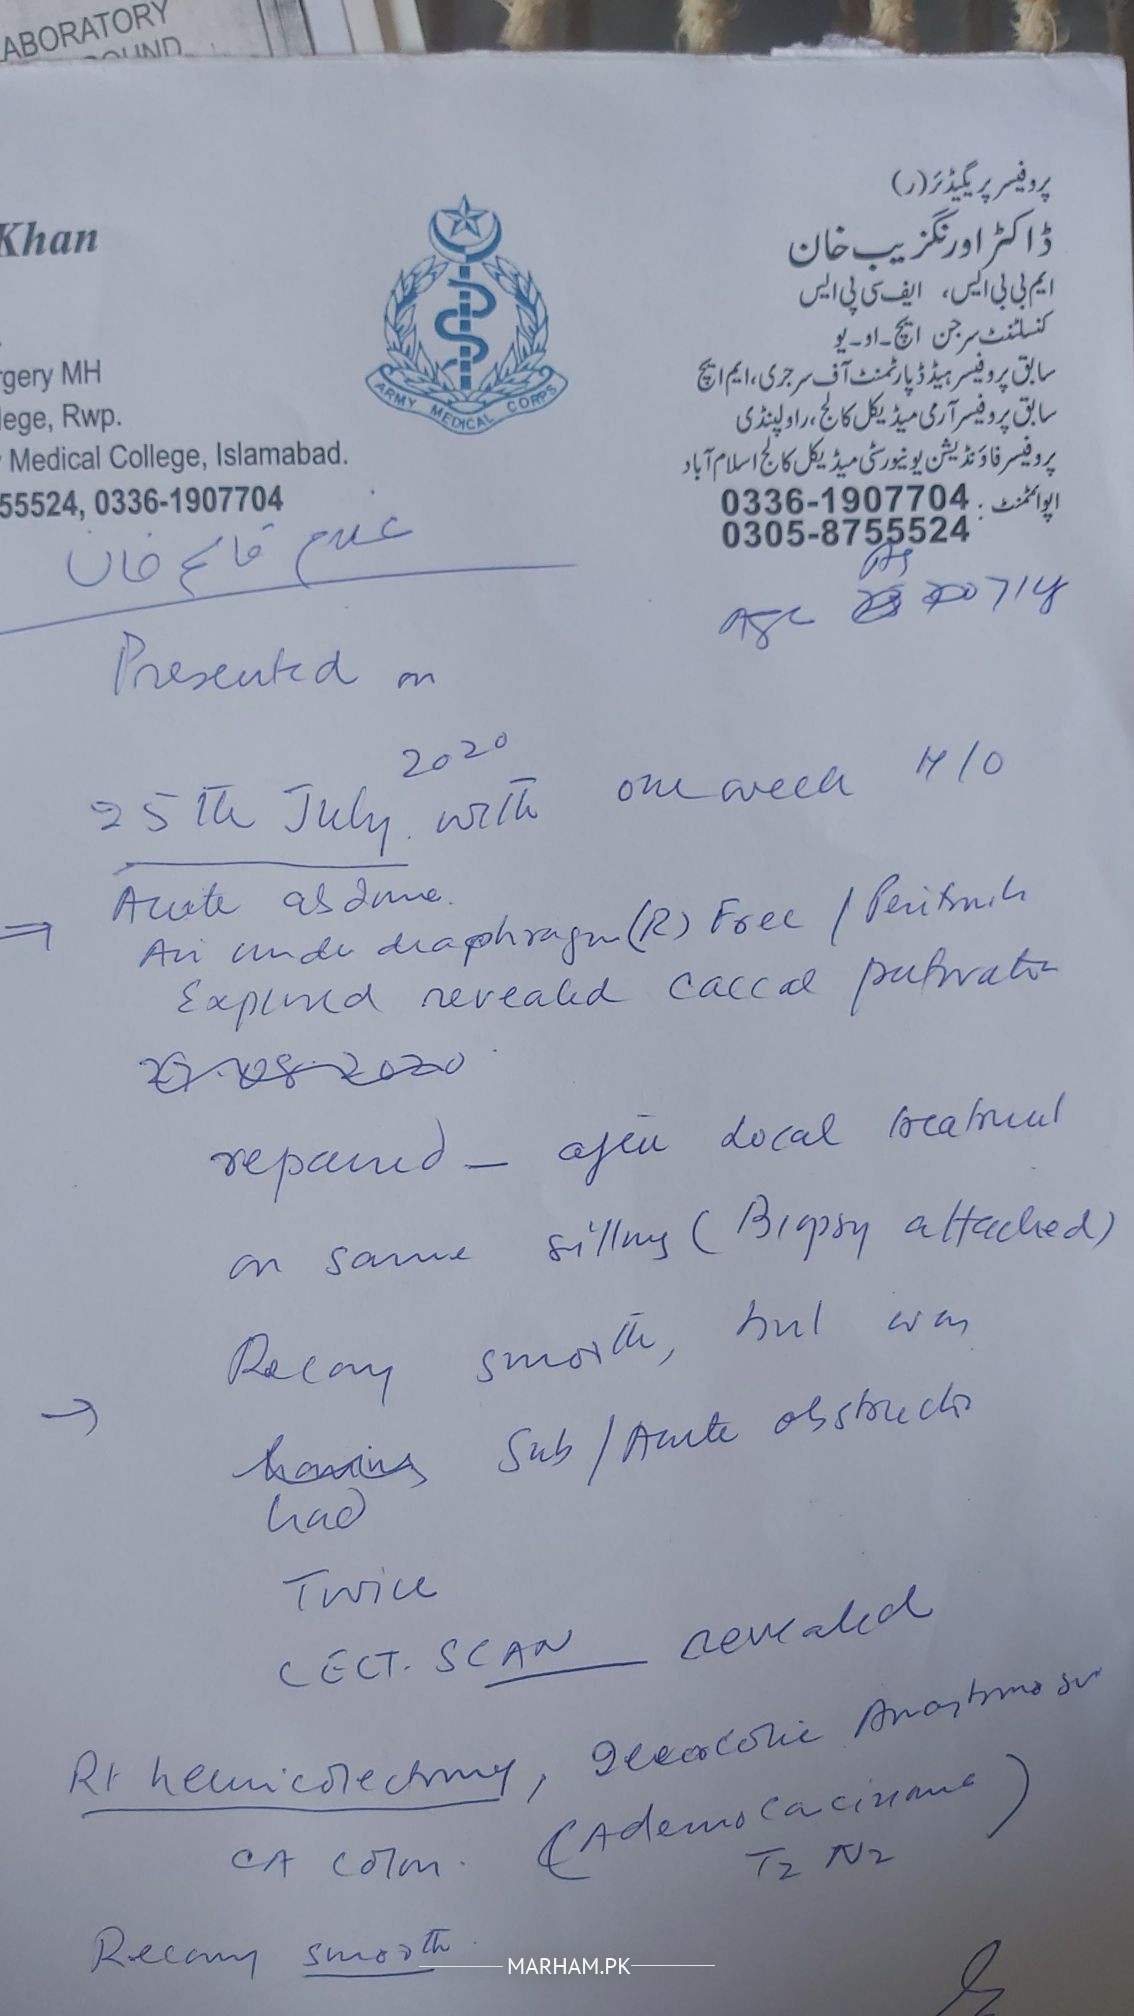 ABORATORY
OUND
پروفیسر بریگیڈئر(ر)
Khan
ڈاکٹر اورنگزیب خان
ایم بی بی ایس، ایف سی پی ایس
کنسلٹنٹ سرجن ایچ-او-یو
rgery MH
سابق پروفیسر ہیڈ ڈپارٹمنٹ آف سرجری، ایم ایچ
lege, Rwp.
سابق پروفیسر آرمی میڈیکل کالج، راولپنڈی
Medical College, Islamabad.
پروفیسر فاؤنڈیشن یونیورسٹی میڈیکل کالج اسلام آباد
55524, 0336-1907704
اپوائنٹمنٹ: 0336-1907704
0305-8755524
ARMY MEDICAL CORPS
خان
Age 71y
Presented on
2020
25th July with one week H/O
Acute abdome.
Air under diaphragm (R) Free / Peritonitis
Explored revealed caecal perforation
27.08.2020
repaired - after local treatment
on same sitting (Biopsy attached)
Recovery smooth, but was
having Sub/Acute obstruction
had
Twice
CECT. SCAN revealed
Rt hemicolectomy, Ileocolic Anastomosis
CA colon. (Adenocarcinoma)
T2 N2
Recovery smooth
MARHAM.PK